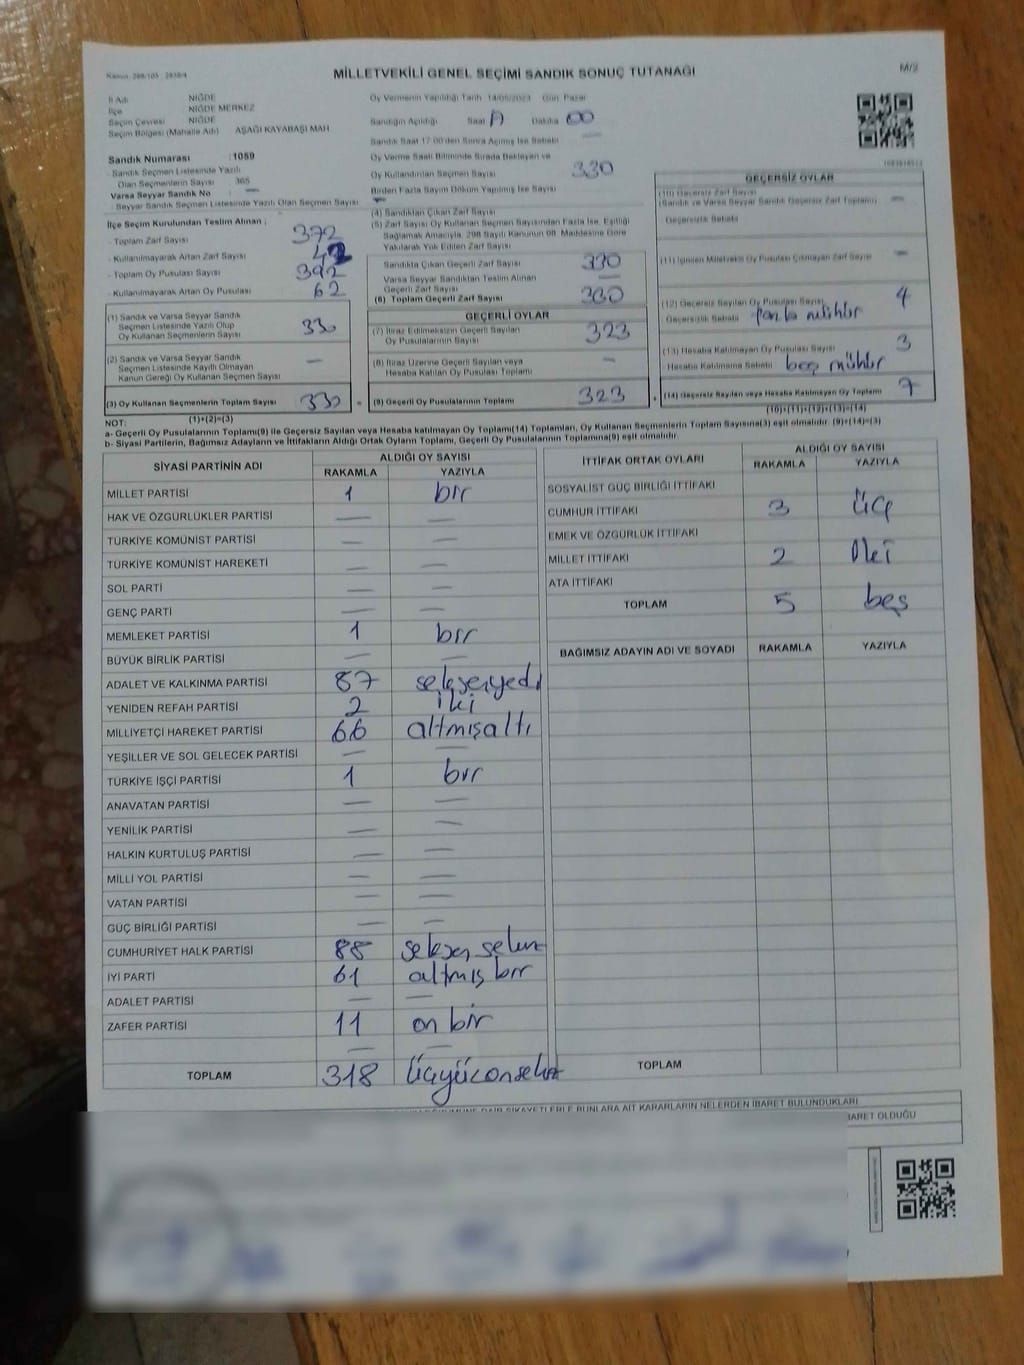 MİLLETVEKİLİ GENEL SEÇİMİ SANDIK SONUÇ TUTANAĞI
M/2
İl Adı NİĞDE
İlçe NİĞDE MERKEZ
Seçim Çevresi NİĞDE
Seçim Bölgesi (Mahalle Adı) AŞAĞI KAYABAŞI MAH
Sandık Numarası : 1059
Sandık Seçmen Listesinde Yazılı
Olan Seçmenlerin Sayısı : 365
Varsa Seyyar Sandık No —
Seyyar Sandık Seçmen Listesinde Yazılı Olan Seçmen Sayısı
Oy Vermenin Yapıldığı Tarih 14/05/2023 Gün Pazar
Sandığın Açıldığı Saat Dakika 00
Sandık Saat 17:00'den Sonra Açılmış İse Sebebi —
Oy Verme Saati Bitiminde Sırada Bekleyen ve
Oy Kullandırılan Seçmen Sayısı 330
Birden Fazla Sayım Döküm Yapılmış İse Sayısı
İlçe Seçim Kurulundan Teslim Alınan ;
- Toplam Zarf Sayısı 372
- Kullanılmayarak Artan Zarf Sayısı
- Toplam Oy Pusulası Sayısı 392
- Kullanılmayarak Artan Oy Pusulası 62
(1) Sandık ve Varsa Seyyar Sandık
Seçmen Listesinde Yazılı Olup
Oy Kullanan Seçmenlerin Sayısı 330
(2) Sandık ve Varsa Seyyar Sandık
Seçmen Listesinde Kayıtlı Olmayan
Kanun Gereği Oy Kullanan Seçmen Sayısı —
(3) Oy Kullanan Seçmenlerin Toplam Sayısı 330
(1)+(2)=(3)
(4) Sandıktan Çıkan Zarf Sayısı
(5) Zarf Sayısı Oy Kullanan Seçmen Sayısından Fazla İse, Eşitliği
Sağlamak Amacıyla, 298 Sayılı Kanunun 98. Maddesine Göre
Yakılarak Yok Edilen Zarf Sayısı
Sandıkta Çıkan Geçerli Zarf Sayısı 330
Varsa Seyyar Sandıktan Teslim Alınan
Geçerli Zarf Sayısı —
(6) Toplam Geçerli Zarf Sayısı 330
GEÇERLİ OYLAR
(7) İtiraz Edilmeksizin Geçerli Sayılan
Oy Pusulalarının Sayısı 323
(8) İtiraz Üzerine Geçerli Sayılan veya
Hesaba Katılan Oy Pusulası Toplamı —
(9) Geçerli Oy Pusulalarının Toplamı 323
GEÇERSİZ OYLAR
(10) Geçersiz Zarf Sayısı
(Sandık ve Varsa Seyyar Sandık Geçersiz Zarf Toplamı) —
Geçersizlik Sebebi
(11) İçinden Milletvekili Oy Pusulası Çıkmayan Zarf Sayısı —
(12) Geçersiz Sayılan Oy Pusulası Sayısı 4
Geçersizlik Sebebi
(13) Hesaba Katılmayan Oy Pusulası Sayısı 3
Hesaba Katılmama Sebebi beş mühür
(14) Geçersiz Sayılan veya Hesaba Katılmayan Oy Toplamı 7
(10)+(11)+(12)+(13)=(14)
NOT:
a- Geçerli Oy Pusulalarının Toplamı(9) ile Geçersiz Sayılan veya Hesaba katılmayan Oy Toplamı(14) Toplamları, Oy Kullanan Seçmenlerin Toplam Sayısına(3) eşit olmalıdır. (9)+(14)=(3)
b- Siyasi Partilerin, Bağımsız Adayların ve İttifakların Aldığı Ortak Oyların Toplamı, Geçerli Oy Pusulalarının Toplamına(9) eşit olmalıdır.
SİYASİ PARTİNİN ADI ALDIĞI OY SAYISI
RAKAMLA YAZIYLA
MİLLET PARTİSİ 1 bir
HAK VE ÖZGÜRLÜKLER PARTİSİ — —
TÜRKİYE KOMÜNİST PARTİSİ — —
TÜRKİYE KOMÜNİST HAREKETİ — —
SOL PARTİ — —
GENÇ PARTİ — —
MEMLEKET PARTİSİ 1 bir
BÜYÜK BİRLİK PARTİSİ — —
ADALET VE KALKINMA PARTİSİ 87 seksenyedi
YENİDEN REFAH PARTİSİ 2 iki
MİLLİYETÇİ HAREKET PARTİSİ 66 altmışaltı
YEŞİLLER VE SOL GELECEK PARTİSİ — —
TÜRKİYE İŞÇİ PARTİSİ 1 bir
ANAVATAN PARTİSİ — —
YENİLİK PARTİSİ — —
HALKIN KURTULUŞ PARTİSİ — —
MİLLİ YOL PARTİSİ — —
VATAN PARTİSİ — —
GÜÇ BİRLİĞİ PARTİSİ — —
CUMHURİYET HALK PARTİSİ 88 seksen sekiz
İYİ PARTİ 61 altmış bir
ADALET PARTİSİ — —
ZAFER PARTİSİ 11 on bir
— —
TOPLAM 318 Üçyüzonsekiz
İTTİFAK ORTAK OYLARI ALDIĞI OY SAYISI
RAKAMLA YAZIYLA
SOSYALİST GÜÇ BİRLİĞİ İTTİFAKI
CUMHUR İTTİFAKI 3 üç
EMEK VE ÖZGÜRLÜK İTTİFAKI
MİLLET İTTİFAKI 2 İki
ATA İTTİFAKI
TOPLAM 5 beş
BAĞIMSIZ ADAYIN ADI VE SOYADI RAKAMLA YAZIYLA
TOPLAM
ŞİKAYETLERLE BUNLARA AİT KARARLARIN NELERDEN İBARET BULUNDUKLARI
İBARET OLDUĞU